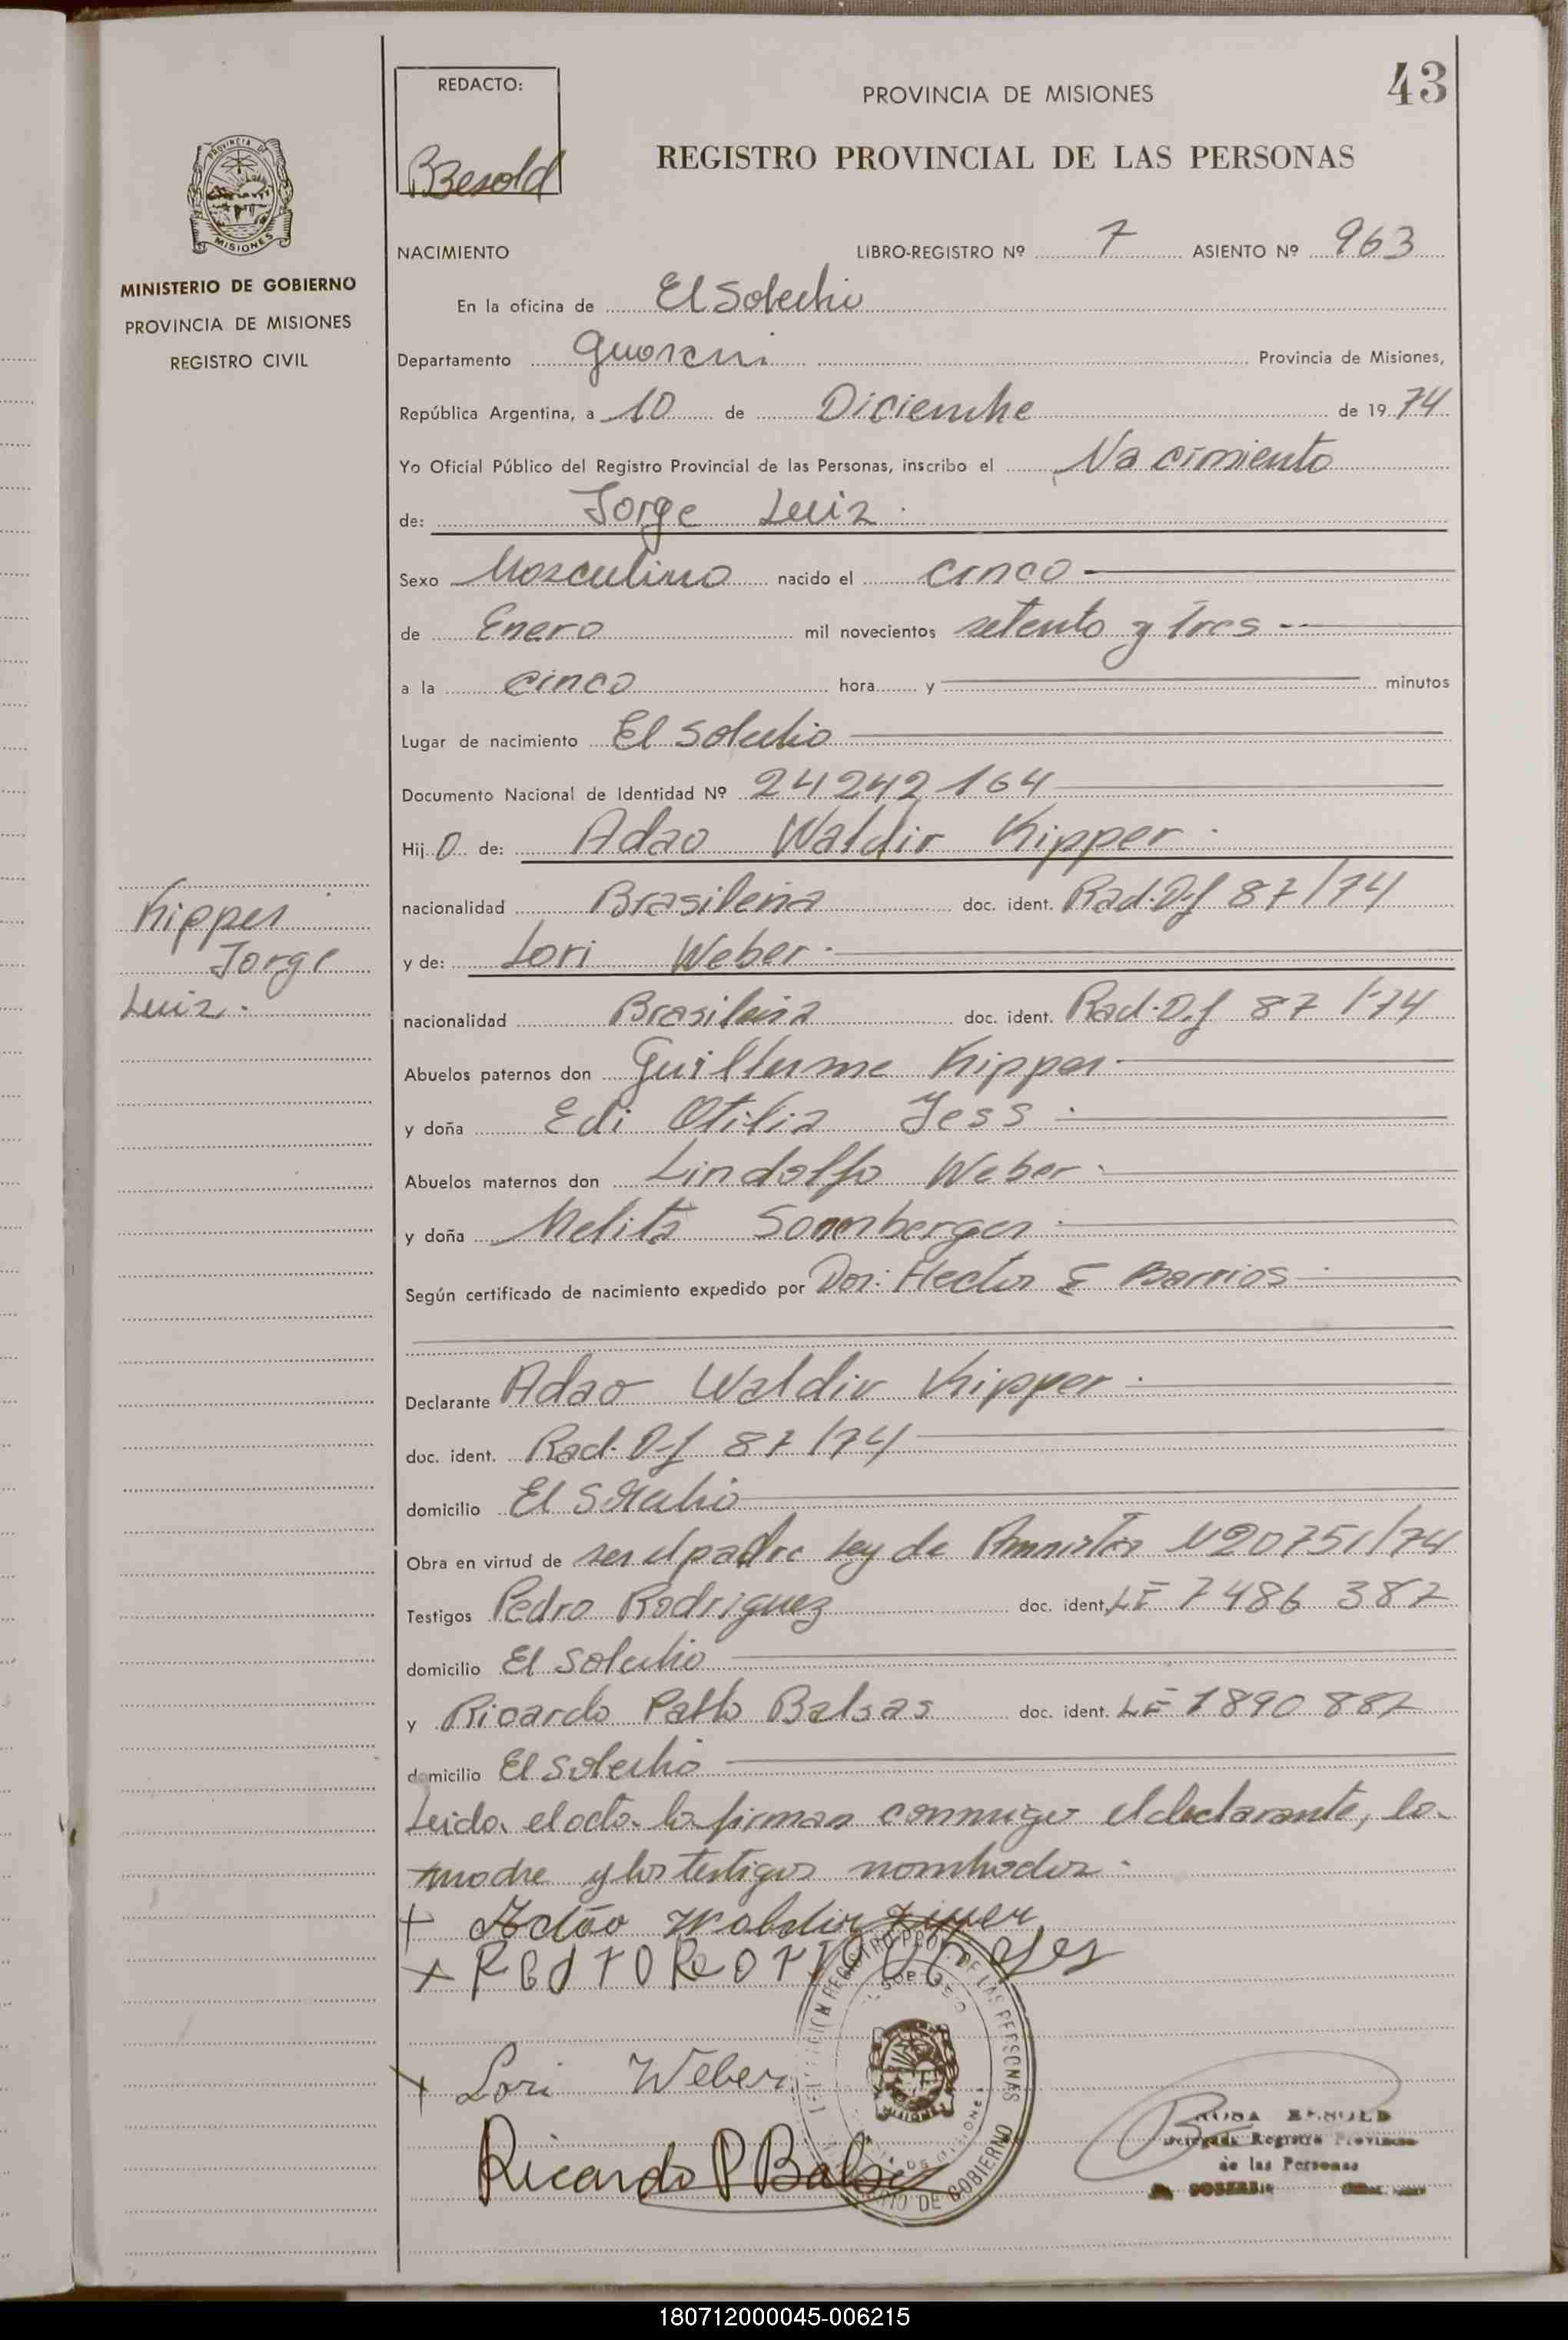 43
REDACTO:
BBesold
PROVINCIA DE MISIONES
REGISTRO PROVINCIAL DE LAS PERSONAS
PROVINCIA DE
MISIONES
MINISTERIO DE GOBIERNO
PROVINCIA DE MISIONES
REGISTRO CIVIL
NACIMIENTO LIBRO-REGISTRO Nº 7 ASIENTO Nº 963
En la oficina de El Soberbio
Departamento Guarani Provincia de Misiones,
República Argentina, a 10 de Diciembre de 19 74
Yo Oficial Público del Registro Provincial de las Personas, inscribo el Nacimiento
de: Jorge Luiz.
Sexo Masculino nacido el cinco
de Enero mil novecientos setenta y tres
a la cinco hora y minutos
Lugar de nacimiento El Soberbio
Documento Nacional de Identidad Nº 24242164
Hij o de: Adao Waldir Kipper.
nacionalidad Brasileña doc. ident. Rad. Df 87/74
y de: Lori Weber.
nacionalidad Brasileña doc. ident. Rad. Df 87/74
Abuelos paternos don Guillerme Kipper
y doña Edi Otilia Jess.
Abuelos maternos don Lindolfo Weber.
y doña Melita Sonnberger.
Según certificado de nacimiento expedido por Dor: Hector E Barrios
Declarante Adao Waldir Kipper.
doc. ident. Rad. Df 87/74
domicilio El Soberbio
Obra en virtud de ser el padre Ley de Amnistia Nº20751/74
Testigos Pedro Rodriguez doc. ident. LE 7486 387
domicilio El Soberbio
y Ricardo Pablo Balsas doc. ident. LE 7890 887
domicilio El Soberbio
Leida el acta la firman conmigo el declarante, la
madre y los testigos nombrados.
Kipper
Jorge
Luiz.
+ Adão Waldir Kipper
x
x Lori Weber
Ricardo P Balsas
REGISTRO PROV. DE LAS PERSONAS
MISIONES
DE GOBIERNO
ROSA BESOLD
Delegada Registro Provincial
de las Personas
180712000045-006215